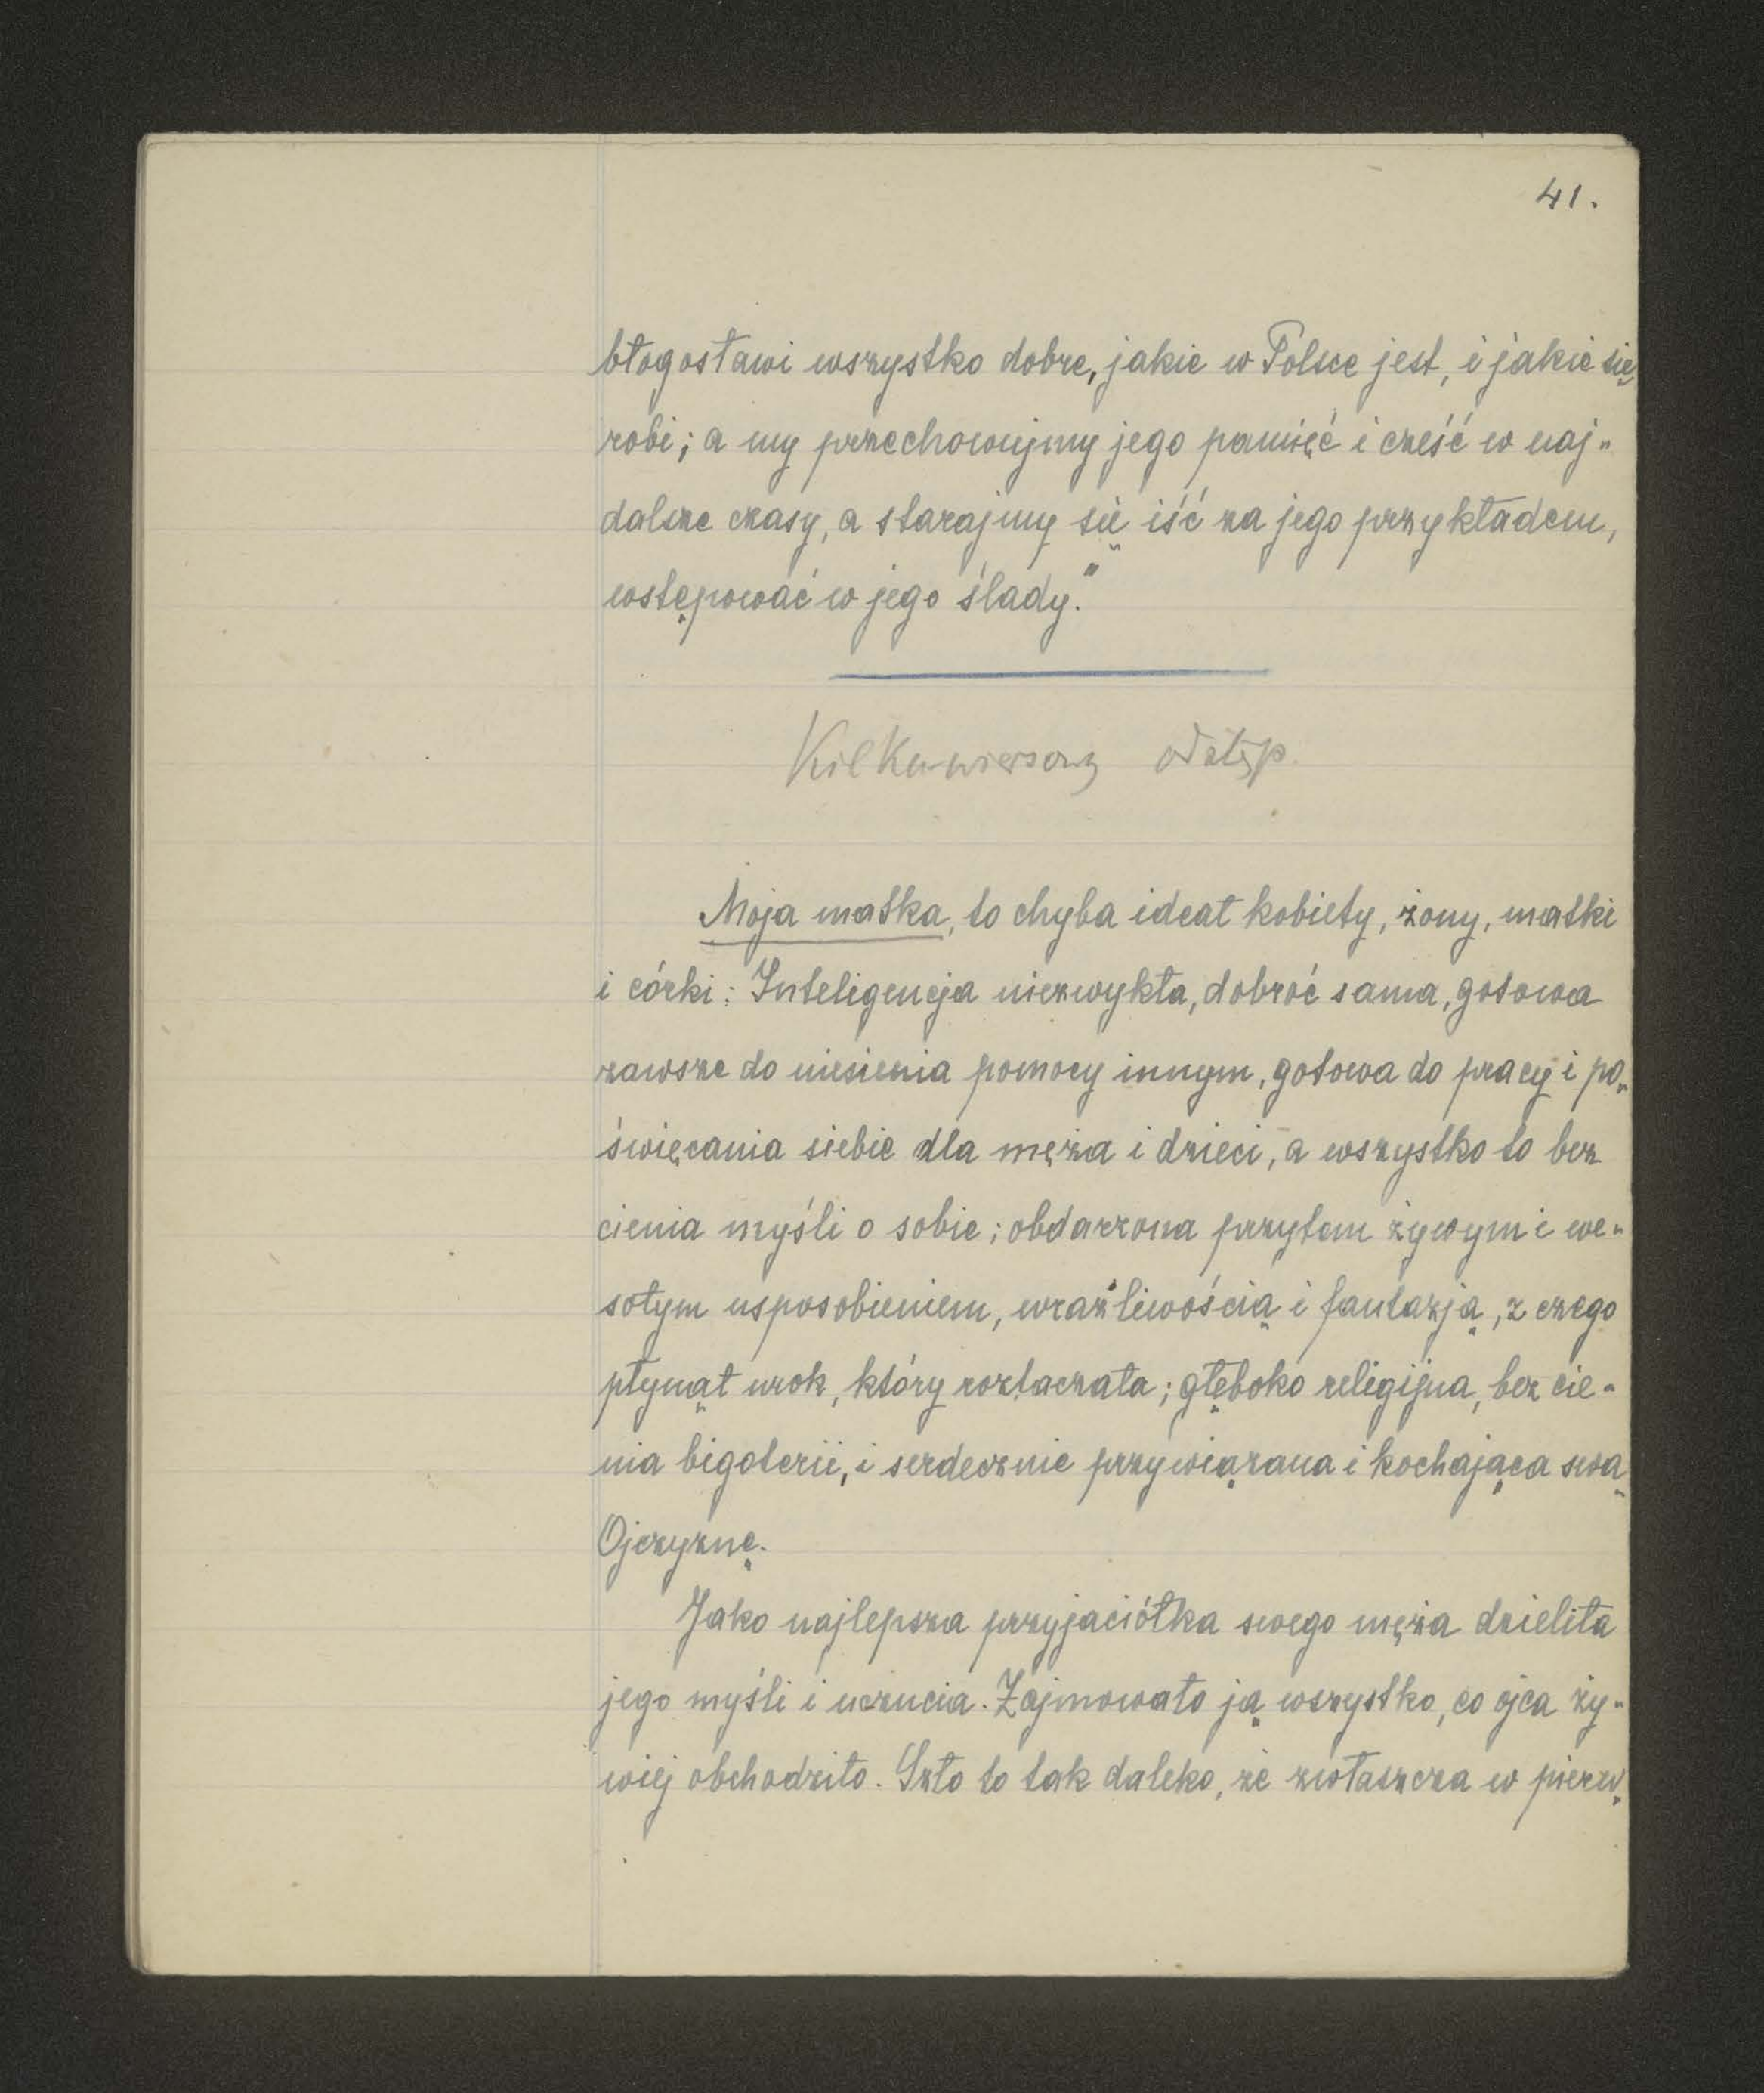 41.
błogosławi wszystko dobre, jakie w Polsce jest, i jakie się
robi; a my przechowujmy jego pamięć i cześć w naj-
dalsze czasy, a starajmy się iść za jego przykładem,
wstępować w jego ślady."
Kilkuwierszowy odstęp.
Moja matka, to chyba ideał kobiety, żony, matki
i córki: Inteligencja niezwykła, dobroć sama, gotowa
zawsze do niesienia pomocy innym, gotowa do pracy i po-
święcania siebie dla męża i dzieci, a wszystko to bez
cienia myśli o sobie; obdarzona przytem żywym i we-
sołym usposobieniem, wrażliwością i fantazją, z czego
płynął urok, który roztaczała; głęboko religijna, bez cie-
nia bigoterii, i serdecznie przywiązana i kochająca swą
Ojczyznę.
Jako najlepsza przyjaciółka swego męża dzieliła
jego myśli i uczucia. Zajmowało ją wszystko, co ojca ży-
wiej obchodziło. Szło to tak daleko, że zwłaszcza w pierw-